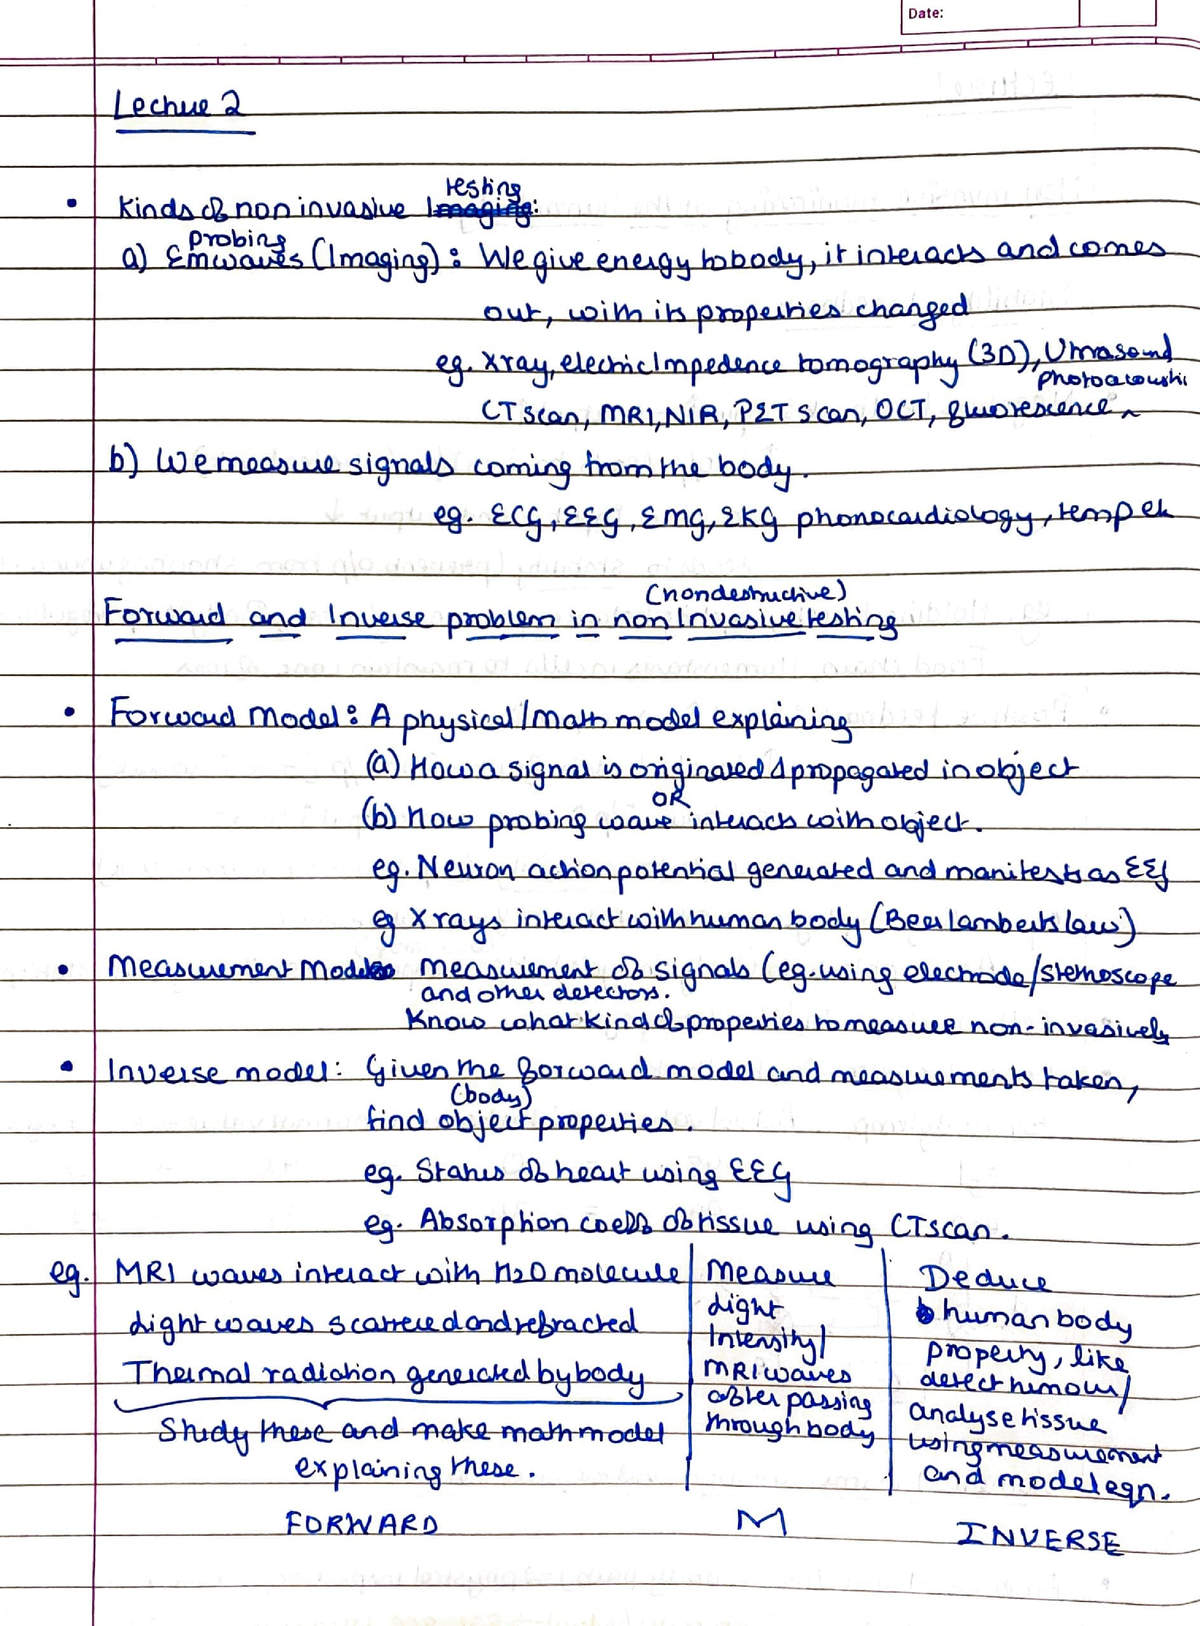 Date:
Lecture 2
• Kinds of non invasive Imaging: testing
a) EM waves probing (Imaging): We give energy to body, it interacts and comes
out, with its properties changed
eg. Xray, electric Impedence tomography (3D), Ultrasound
CT scan, MRI, NIR, PET scan, OCT, fluorescence, photoacoustic
b) We measure signals coming from the body.
eg. ECG, EEG, EMG, EKG phonocardiology, temp etc
Forward and Inverse problem in non Invasive testing (nondestructive)
• Forward Model: A physical/math model explaining
(a) How a signal is originated & propagated in object
OR
(b) How probing wave interacts with object.
eg. Neuron action potential generated and manifests as EEG
eg Xrays interact with human body (Beer Lamberts law)
• Measurement Model: Measurement of signals (eg. using electrode/stethoscope
and other detectors.
Know what kind of properties to measure non-invasively
• Inverse model: Given the forward model and measurements taken,
find object (body) properties.
eg. Status of heart using EEG
eg. Absorption coeff of tissue using CT scan.
eg. MRI waves interact with H2O molecule
Light waves scattered and refracted
Thermal radiation generated by body
Study these and make math model
explaining these.
FORWARD
Measure
Light
Intensity/
MRI waves
after passing
through body
M
Deduce
human body
property, like
detect tumour/
analyse tissue
using measurement
and model eqn.
INVERSE